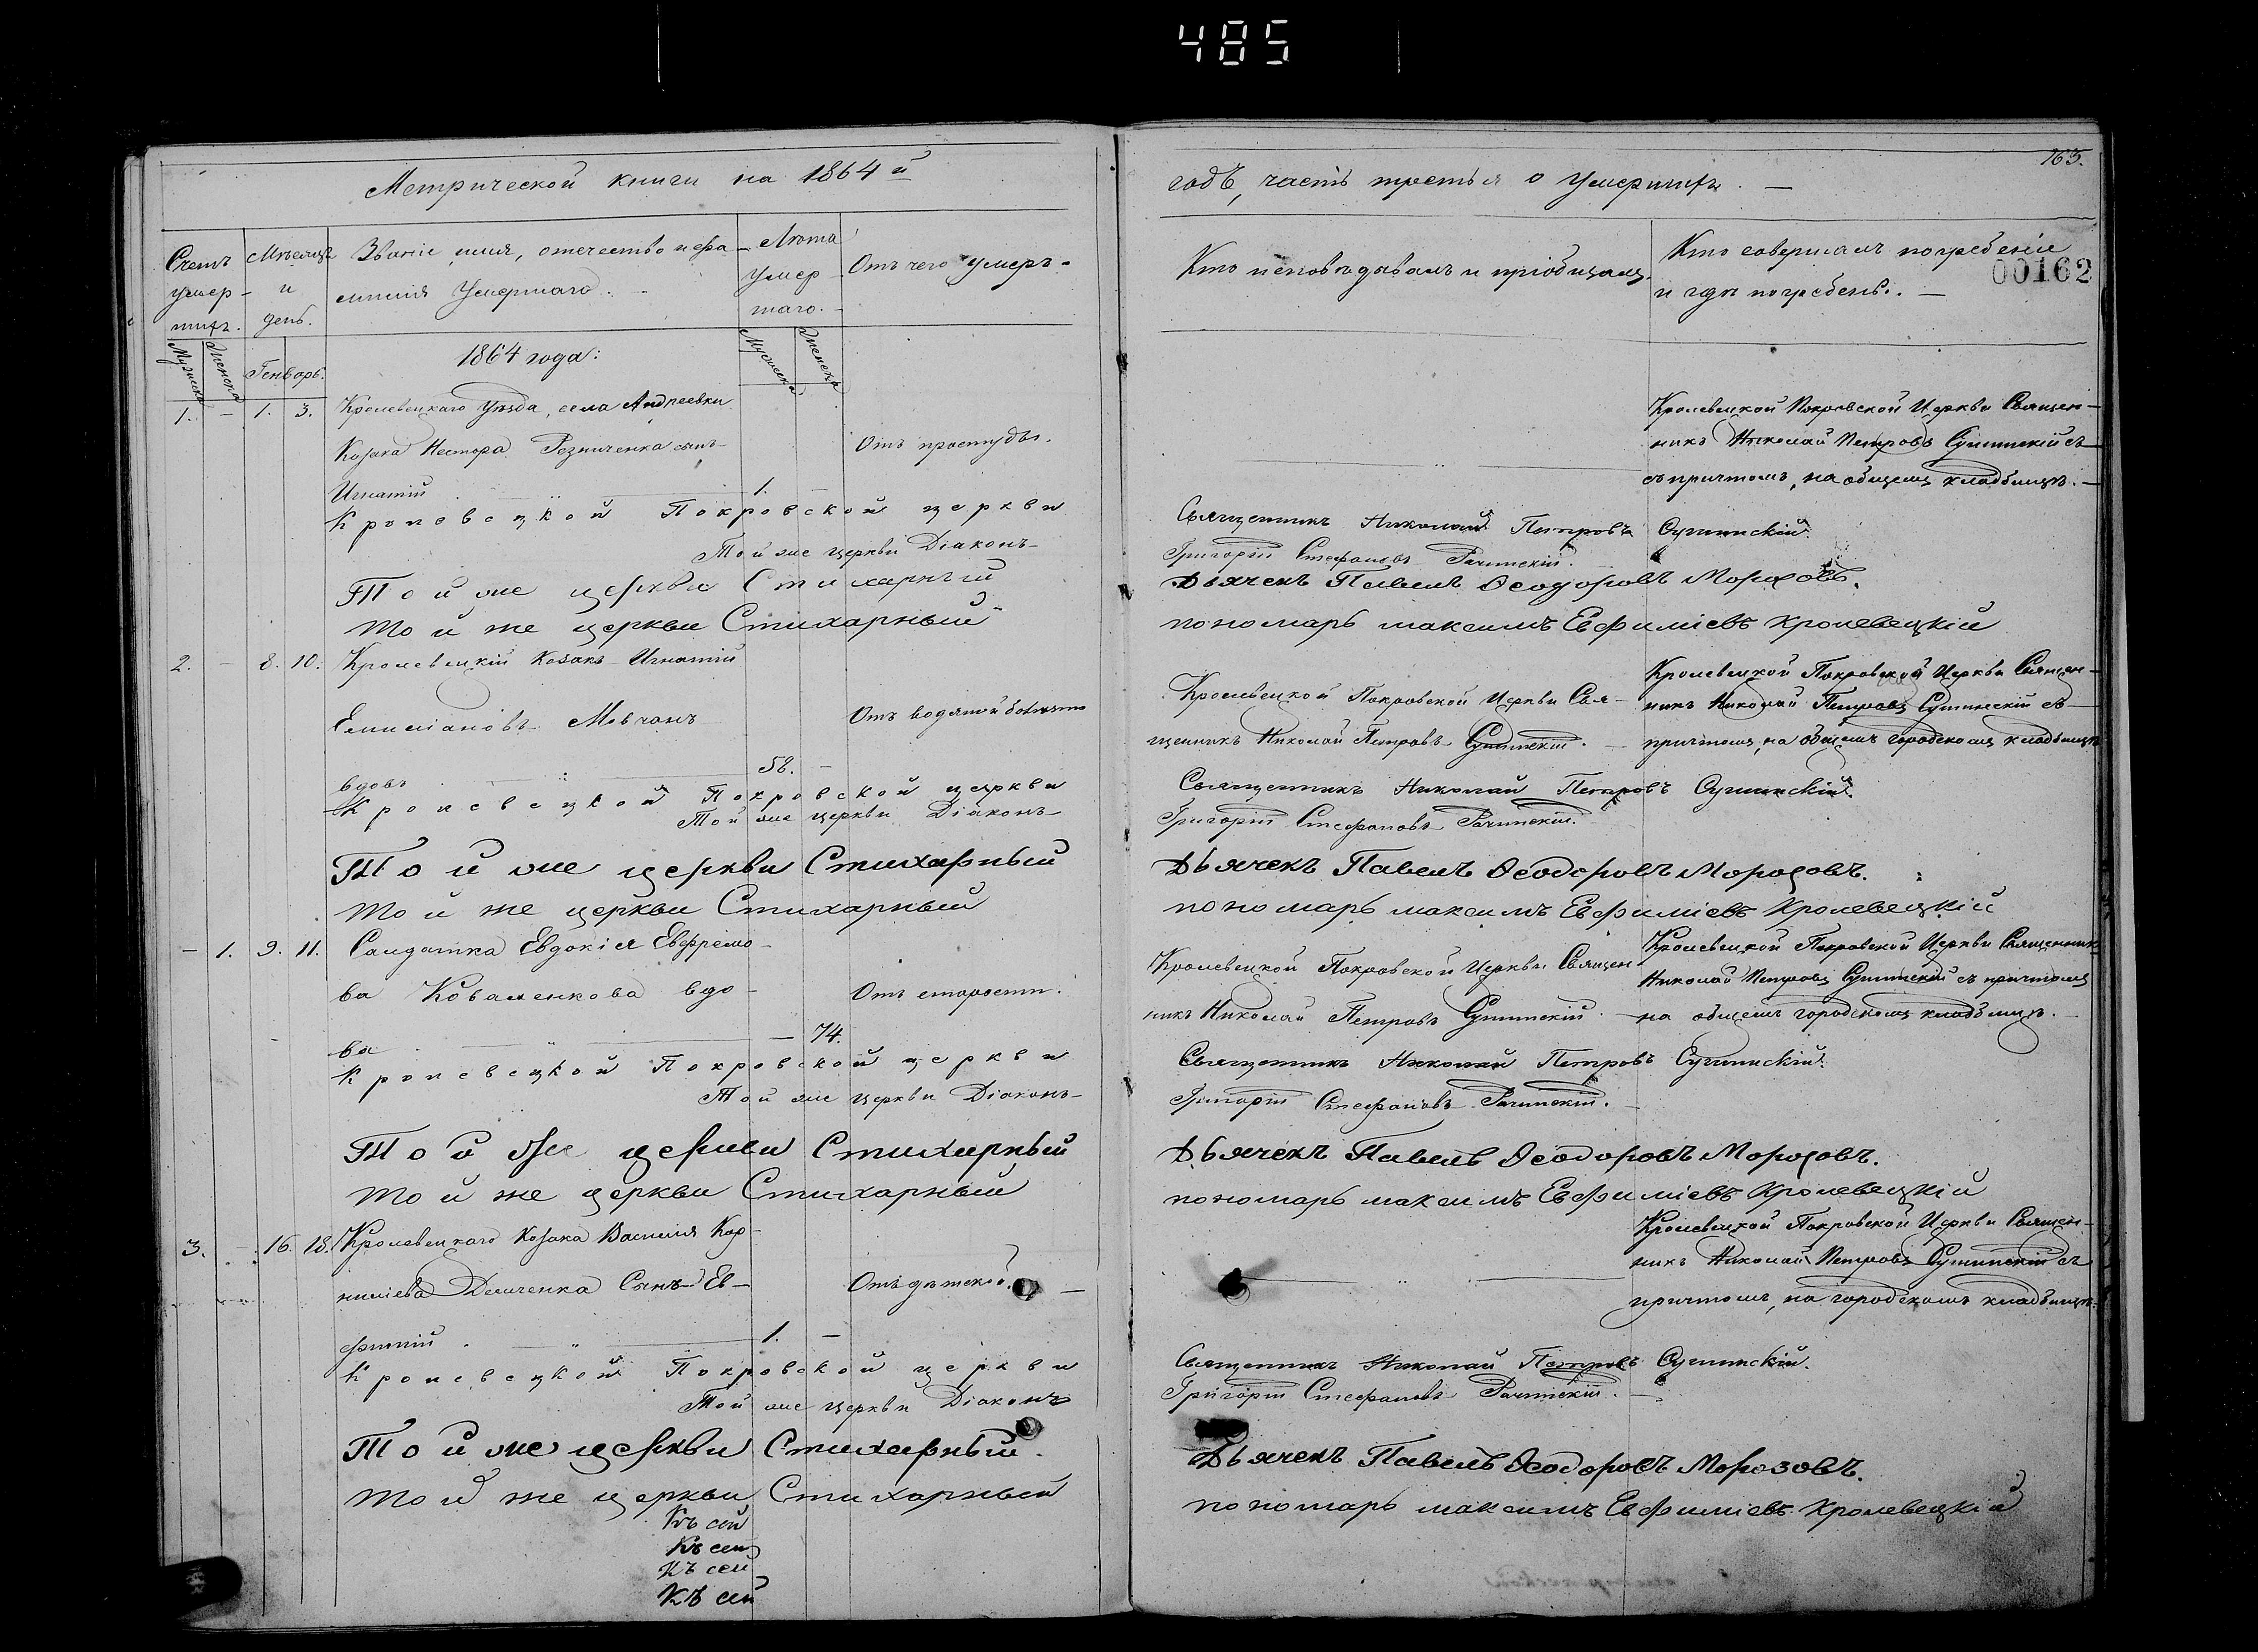 485
Метрической книги на 1864й
годъ, часть третья о умершихъ.
163.
00162
Счетъ умер-шихъ.
Мѣсяцъ и день.
Званіе, имя, отечество и фа-
милія Умершаго.
Лѣта умер-шаго.
Отъ чего умеръ.
Кто исповѣдывалъ и пріобщалъ.
Кто совершалъ погребеніе
и гдѣ погребены.
Мужеска
Женска
Генворь.
1864 года:
Мужеска
Женска
1. - 1. 3. Кролевецкаго Уѣзда, села Андреевки
Козака Нестора Резниченка сынъ
Игнатій 1.
Отъ простуды.
Кролевецкой Покровской Церкви Священ-
никъ Николай Петровъ Сущинскій съ
съ причтомъ, на общемъ кладбищѣ.
Кролевецкой Покровской церкви
Священникъ Николай Петровъ Сущинскій.
Той же церкви Діаконъ
Григорій Стефановъ Рачинскій.
Той же церкви Стихарный
Дьячекъ Павелъ Ѳеодоровъ Морозовъ.
той же церкви Стихарный
пономарь максимъ Евфиміевъ Кролевецкій
2. - 8. 10. Кролевецкій Козакъ Игнатій
Емиліановъ Мовчанъ
вдовъ 58. -
Отъ водяной болѣзни
Кролевецкой Покровской Церкви Свя-
щенникъ Николай Петровъ Сущинскій.
Кролевецкой Покровской Церкви Священ-
никъ Николай Петровъ Сущинскій съ
причтомъ, на общемъ городскомъ кладбищѣ
Кролевецкой Покровской церкви
Священникъ Николай Петровъ Сущинскій.
Той же церкви Діаконъ
Григорій Стефановъ Рачинскій.
Той же церкви Стихарный
Дьячекъ Павелъ Ѳеодоровъ Морозовъ.
той же церкви Стихарный
пономарь максимъ Евфиміевъ Кролевецкій
- 1. 9. 11. Салдатка Евдокія Евфремо-
ва Коваленкова вдо-
ва - 74.
Отъ старости.
Кролевецкой Покровской Церкви Священ
никъ Николай Петровъ Сущинскій.
Кролевецкой Покровской Церкви Священникъ
Николай Петровъ Сущинскій съ причтомъ
на общемъ городскомъ кладбищѣ.
Кролевецкой Покровской церкви
Священникъ Николай Петровъ Сущинскій.
Той же церкви Діаконъ
Григорій Стефановъ Рачинскій.
Той же церкви Стихарный
Дьячекъ Павелъ Ѳеодоровъ Морозовъ.
той же церкви Стихарный
пономарь максимъ Евфиміевъ Кролевецкій
3. - 16. 18. Кролевецкаго Козака Василія Кор-
ниліева Сынъ Ев-
фимій 1. -
Отъ дѣтской.
Кролевецкой Покровской Церкви Священ-
никъ Николай Петровъ Сущинскій съ
причтомъ, на городскомъ кладбищѣ.
Кролевецкой Покровской церкви
Священникъ Николай Петровъ Сущинскій.
Той же церкви Діаконъ
Григорій Стефановъ Рачинскій.
Той же церкви Стихарный
Дьячекъ Павелъ Ѳеодоровъ Морозовъ.
той же церкви Стихарный
пономарь максимъ Евфиміевъ Кролевецкій
Къ сей
Къ сей
Къ сей
Къ сей